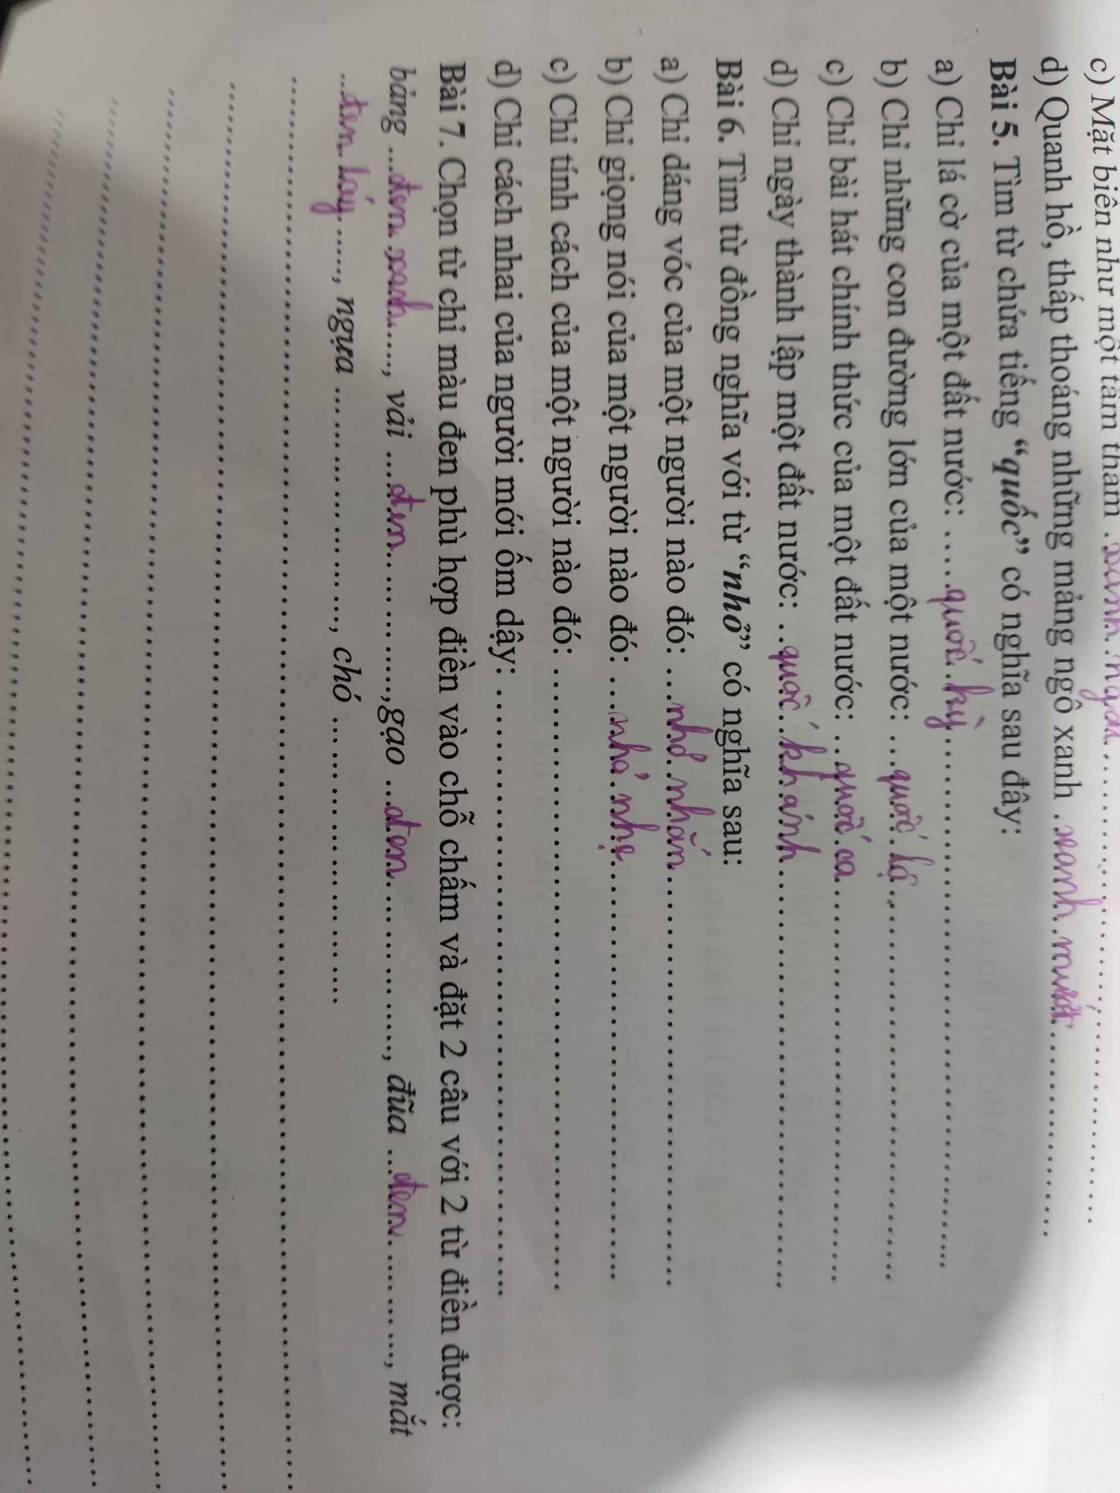 c) Mặt biển như một tấm thảm .xanh. ngắt..............................
d) Quanh hồ, thấp thoáng những mảng ngô xanh .xanh. mướt..............................
Bài 5. Tìm từ chứa tiếng “quốc” có nghĩa sau đây:
a) Chỉ lá cờ của một đất nước: ....quốc.kỳ..............................
b) Chỉ những con đường lớn của một nước: ...quốc.lộ..............................
c) Chỉ bài hát chính thức của một đất nước: ..quốc.ca..............................
d) Chỉ ngày thành lập một đất nước: ..quốc.khánh..............................
Bài 6. Tìm từ đồng nghĩa với từ “nhỏ” có nghĩa sau:
a) Chỉ dáng vóc của một người nào đó: ...nhỏ.nhắn..............................
b) Chỉ giọng nói của một người nào đó: ...nhỏ.nhẹ..............................
c) Chỉ tính cách của một người nào đó: ..............................
d) Chỉ cách nhai của người mới ốm dậy: ..............................
Bài 7. Chọn từ chỉ màu đen phù hợp điền vào chỗ chấm và đặt 2 câu với 2 từ điền được:
bảng ...đen.xanh...., vải ...đen............,gạo ...đen............, đũa ...đen.........., mắt
...đen.láy....., ngựa ................., chó .....................